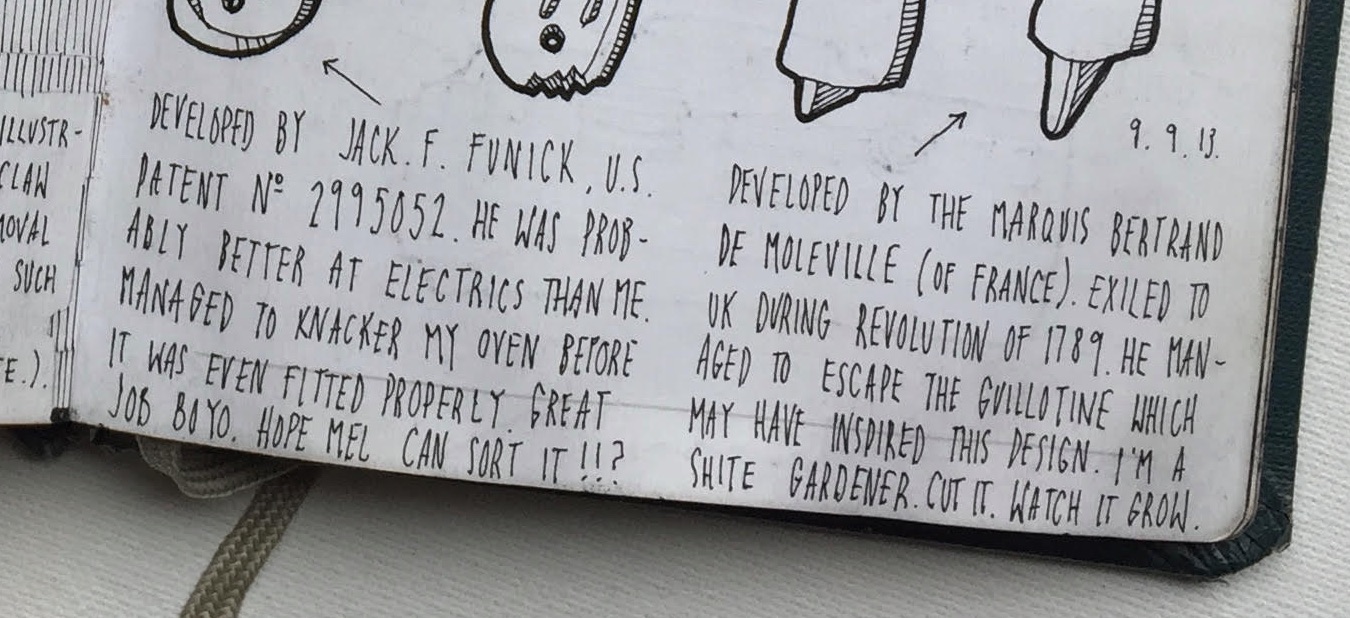 ILLUSTR-
CLAW
MOVAL
SUCH
E.).
DEVELOPED BY JACK. F. FUNICK, U.S.
PATENT Nº 2995052. HE WAS PROB-
ABLY BETTER AT ELECTRICS THAN ME.
MANAGED TO KNACKER MY OVEN BEFORE
IT WAS EVEN FITTED PROPERLY. GREAT
JOB BOYO. HOPE MEL CAN SORT IT !!?
9. 9. 13.
DEVELOPED BY THE MARQUIS BERTRAND
DE MOLEVILLE (OF FRANCE). EXILED TO
UK DURING REVOLUTION OF 1789. HE MAN-
AGED TO ESCAPE THE GUILLOTINE WHICH
MAY HAVE INSPIRED THIS DESIGN. I'M A
SHITE GARDENER. CUT IT. WATCH IT GROW.